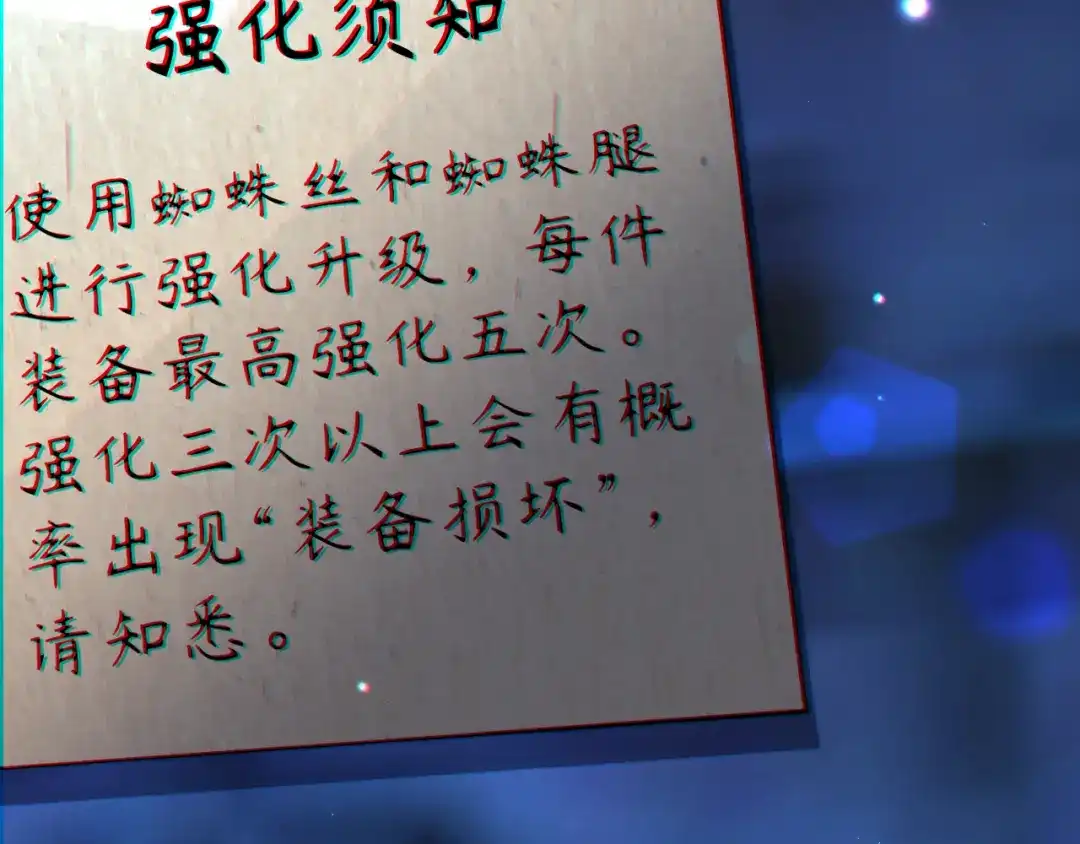 强化须知
使用蜘蛛丝和蜘蛛腿
进行强化升级，每件
装备最高强化五次。
强化三次以上会有概
率出现“装备损坏”，
请知悉。